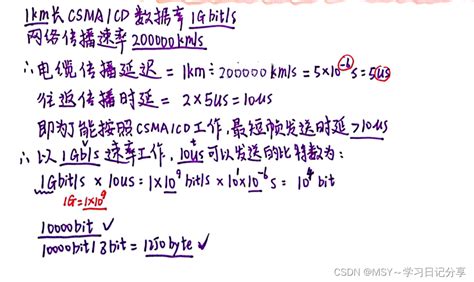 1km长CSMA/CD数据率1Gbit/s
网络传播速率200000km/s
∴电缆传播延迟=1km÷200000km/s=5×10⁻⁶s=5us
往返传播时延=2×5us=10us
即为了能按照CSMA/CD工作,最短帧发送时延>10us
∴以1Gb/s速率工作,10us可以发送的比特数为:
1Gbit/s×10us=1×10⁹bit/s×10×10⁻⁶s=10⁴bit
1G=1×10⁹
10000bit✓
10000bit/8bit=1250byte✓
CSDN @MSY~学习日记分享